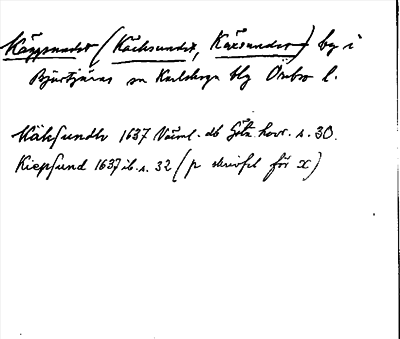 Käppsundet (Kächsundet, Käxsundet) by i
Bjurtjärns sn Karlskoga blg Örebro l.
Käksundh 1637 Värml. db Göta hovr. s. 30.
Kiepsund 1637 ib. s. 32 (p skrivfel för x)